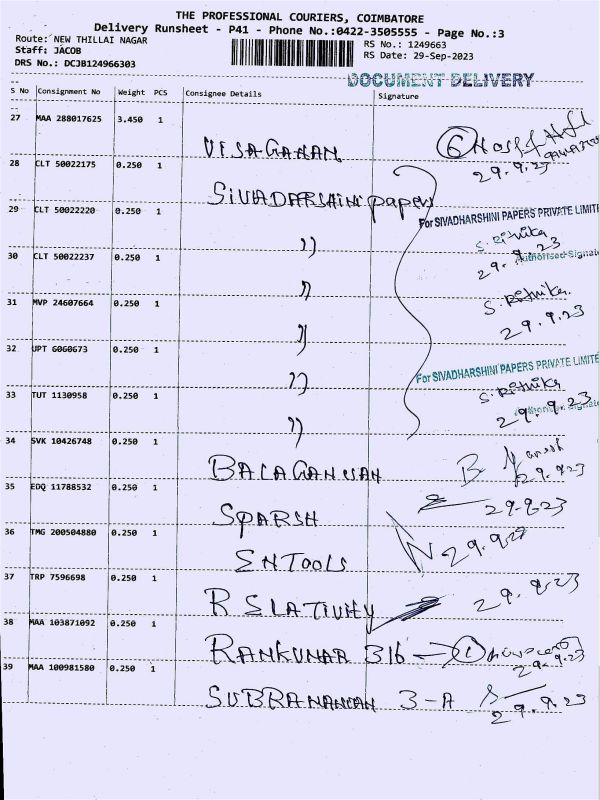 THE PROFESSIONAL COURIERS, COIMBATORE
Delivery Runsheet - P41 - Phone No.:0422-3505555 - Page No.:3
Route: NEW THILLAI NAGAR
Staff: JACOB
DRS No.: DCJB124966303
RS No.: 1249663
RS Date: 29-Sep-2023
DOCUMENT DELIVERY
S No Consignment No Weight PCS Consignee Details Signature
27 MAA 288017625 3.450 1
VISAGANAN
29.9.23
28 CLT 50022175 0.250 1
SIVADARSHINI papers
29 CLT 50022220 0.250 1
For SIVADHARSHINI PAPERS PRIVATE LIMITE
")
S. Rithika
29.9.23
Authorised Signato
30 CLT 50022237 0.250 1
")
S. Rithika
29.9.23
31 MVP 24607664 0.250 1
")
32 UPT 6060673 0.250 1
For SIVADHARSHINI PAPERS PRIVATE LIMITE
")
S. Rithika
33 TUT 1130958 0.250 1
29.9.23
")
34 SVK 10426748 0.250 1
BALAGANESAN
29.9.23
35 EDQ 11788532 0.250 1
29.9.23
SPARSH
36 TMG 200504880 0.250 1
29.9.23
ENTOOLS
37 TRP 7596698 0.250 1
29.9.23
RELATIVITY
38 MAA 103871092 0.250 1
RAMKUMAR 316
29.9.23
39 MAA 100981580 0.250 1
SUBRAMANIAN 3-A
29.9.23